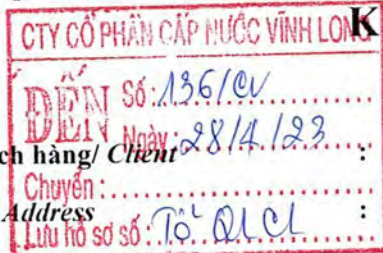 CTY CỔ PHẦN CẤP NƯỚC VĨNH LONG
K
ĐẾN Số: 136/CV
Ngày: 28/4/23
ch hàng/ Client :
Chuyển:
Address :
Lưu hồ sơ số: Tổ QLCL